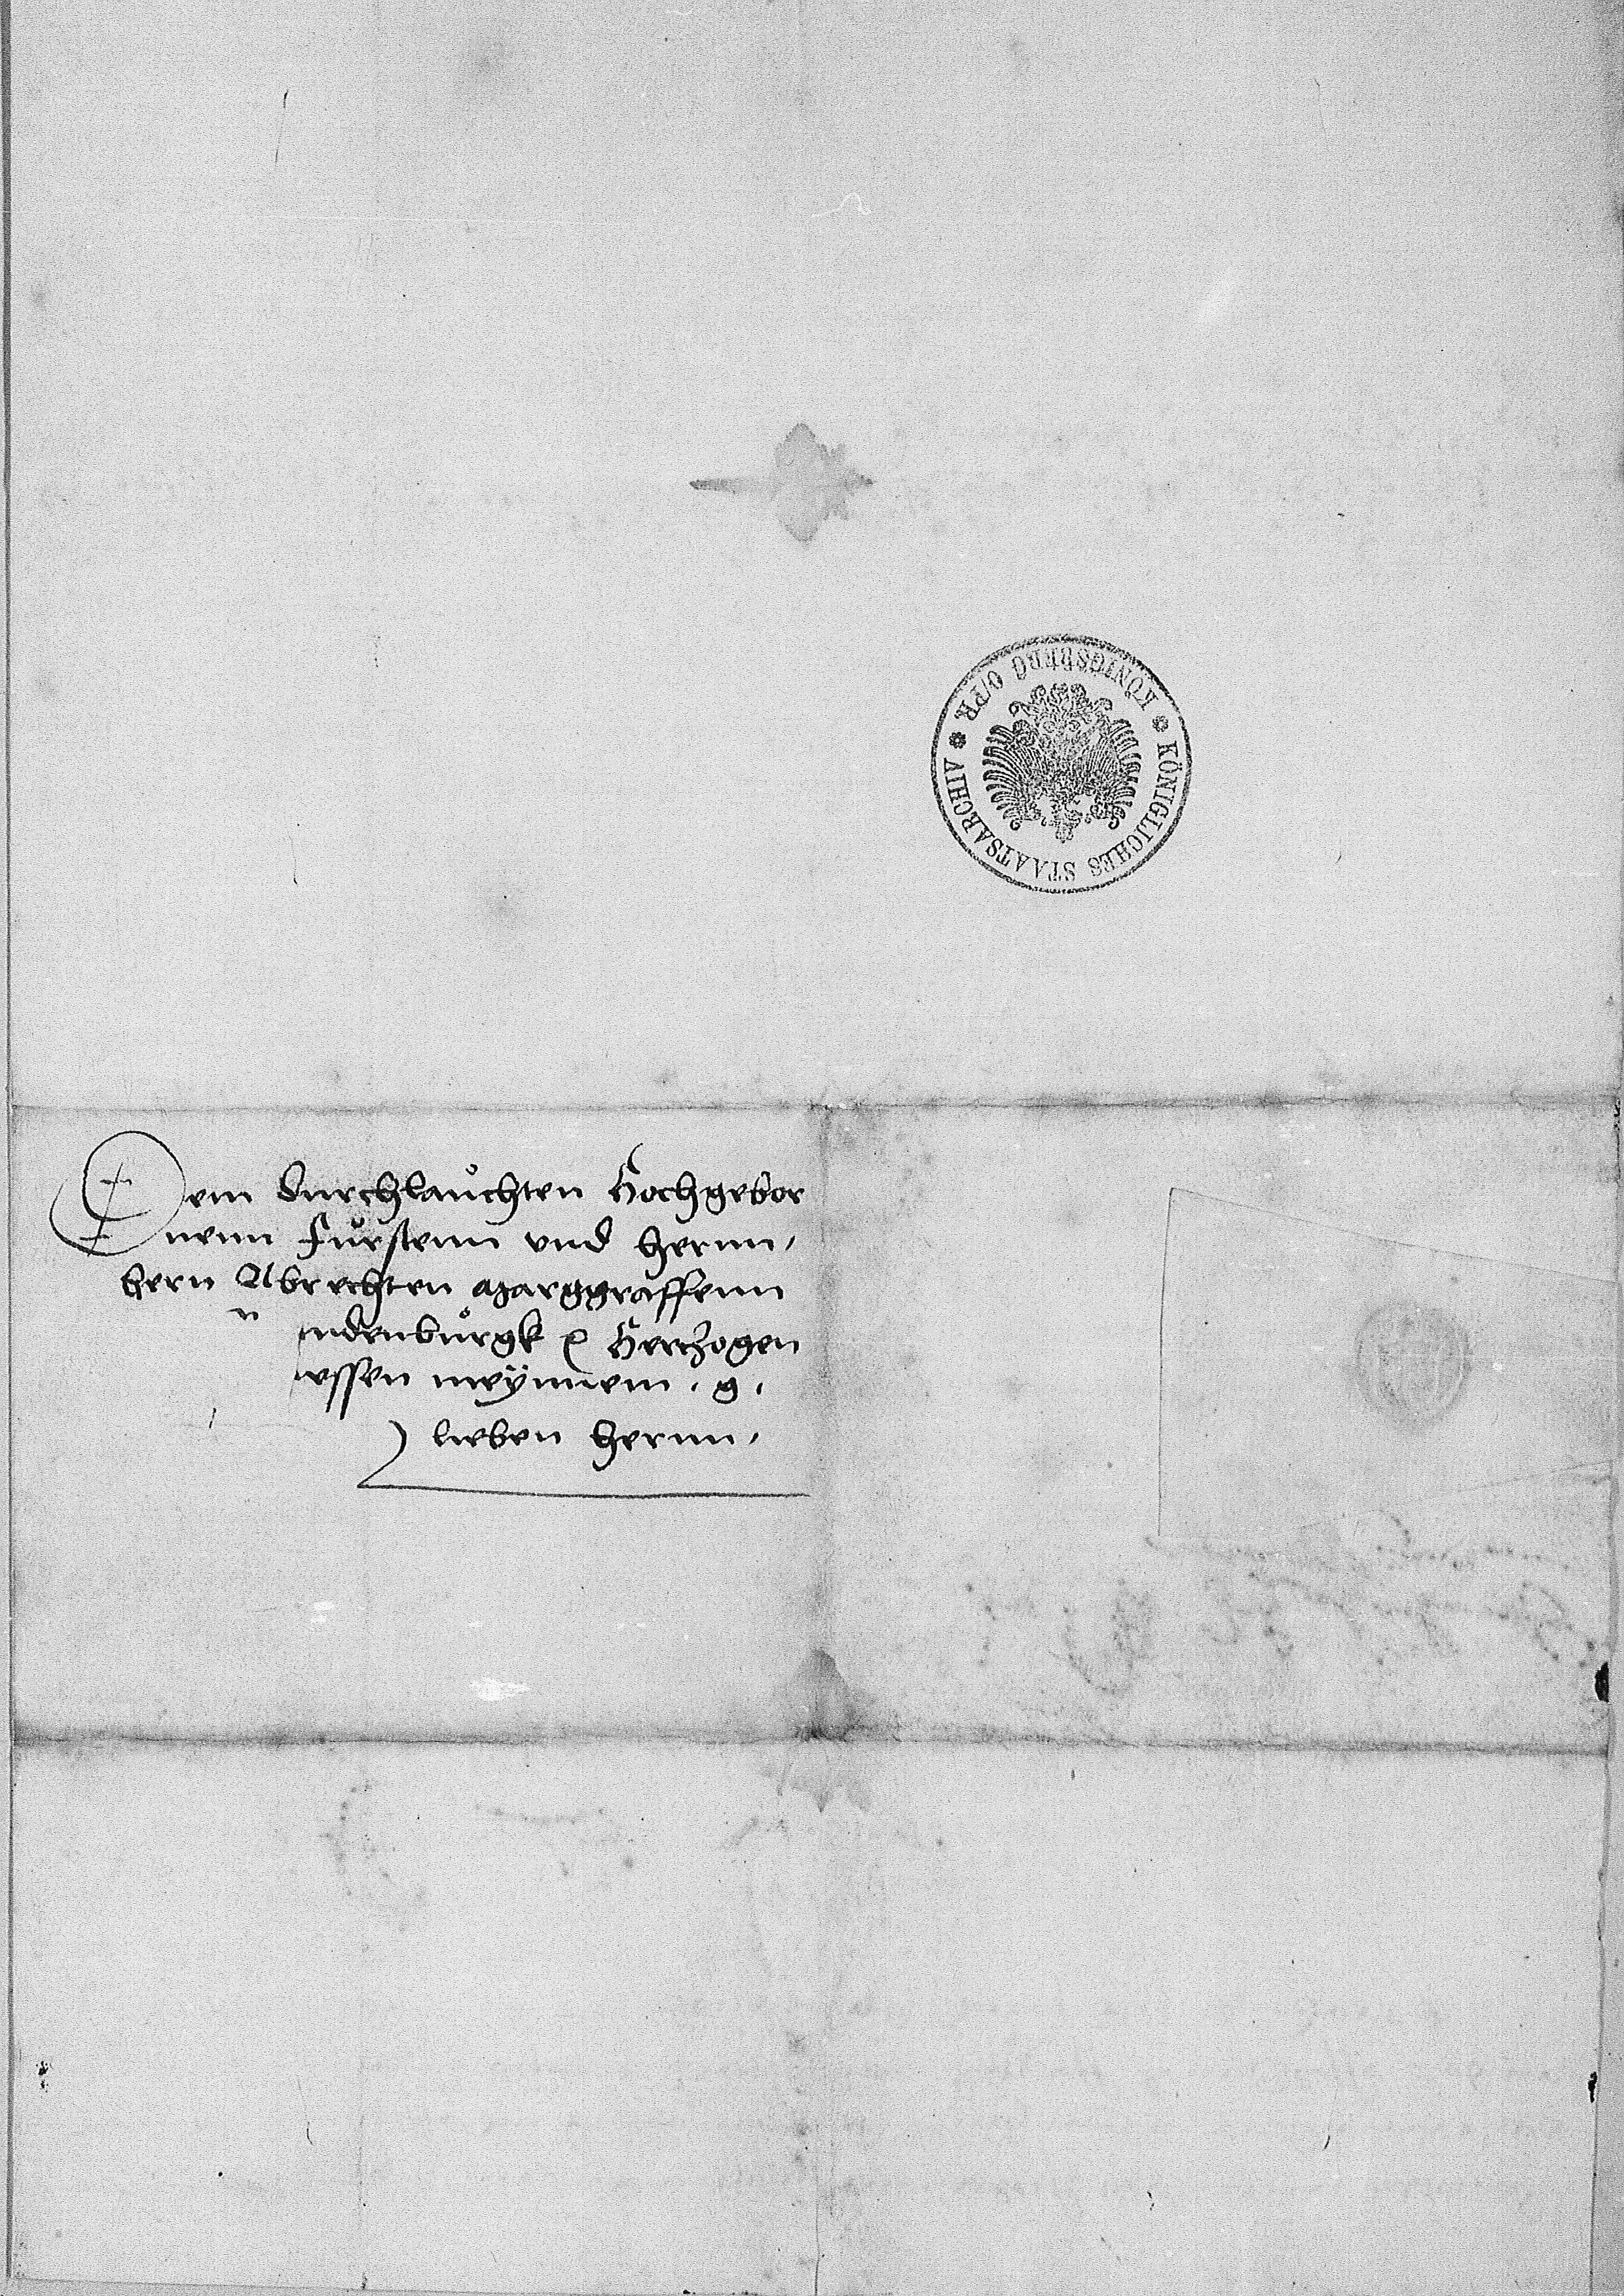 KÖNIGLICHES STAATSARCHIV * KÖNIGSBERG O/PR *
Dem durchlaůchten Hochgebor
nenn Fůrstenn vnd hernn,
hern Albrechten Marggraffenn
n ndenbůrgk ꝛc Hertzogen
ussen meÿnnem . g .
lieben hernn,